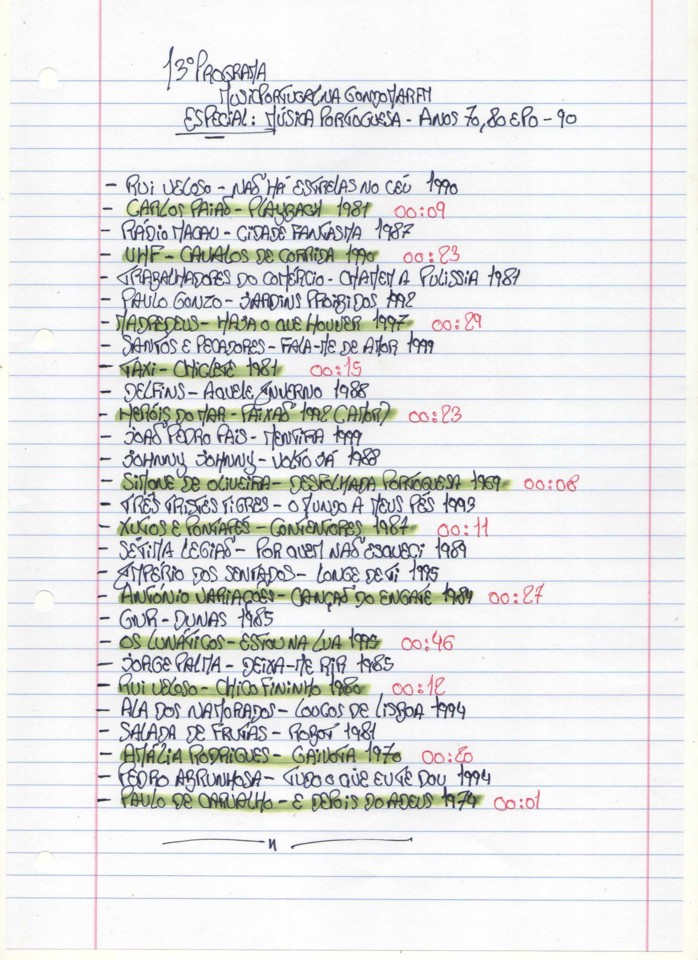 13º PROGRAMA
MUSICPORTUGAL NA GONDOMAR FM
ESPECIAL: MÚSICA PORTUGUESA - ANOS 70, 80 E PO - 90
- RUI VELOSO - NÃO HÁ ESTRELAS NO CÉU 1990
- CARLOS PAIÃO - PLAYBACK 1981 00:09
- RÁDIO MACAU - CIDADE FANTASMA 1987
- UHF - CAVALOS DE CORRIDA 1990 00:23
- TRABALHADORES DO COMÉRCIO - CHAMEM A PULISSIA 1981
- PAULO GONZO - JARDINS PROIBIDOS 1992
- MADREDEUS - HAJA O QUE HOUVER 1997 00:29
- SANTOS E PECADORES - FALA-ME DE AMOR 1999
- TAXI - CHICLETE 1981 00:15
- DELFINS - AQUELE INVERNO 1988
- HERÓIS DO MAR - PAIXÃO 1992 (AMOR) 00:23
- JOÃO PEDRO PAIS - MENTIRA 1999
- JOHNNY JOHNNY - VOLTO JÁ 1988
- SIMONE DE OLIVEIRA - DESFOLHADA PORTUGUESA 1969 00:08
- TRÊS TRISTES TIGRES - O MUNDO A MEUS PÉS 1993
- XUTOS E PONTAPÉS - CONTENTORES 1987 00:11
- SÉTIMA LEGIÃO - POR QUEM NÃO ESQUECI 1989
- IMPÉRIO DOS SENTADOS - LONGE DE TI 1995
- ANTÓNIO VARIAÇÕES - CANÇÃO DO ENGATE 1984 00:27
- GNR - DUNAS 1985
- OS LUNÁTICOS - ESTOU NA LUA 1995 00:46
- JORGE PALMA - DEIXA-ME RIR 1985
- RUI VELOSO - CHICO FININHO 1980 00:12
- ALA DOS NAMORADOS - LOUCOS DE LISBOA 1994
- SALADA DE FRUTAS - ROBOT 1981
- AMÁLIA RODRIGUES - GAIVOTA 1970 00:20
- PEDRO ABRUNHOSA - TUDO O QUE EU TE DOU 1994
- PAULO DE CARVALHO - E DEPOIS DO ADEUS 1974 00:01